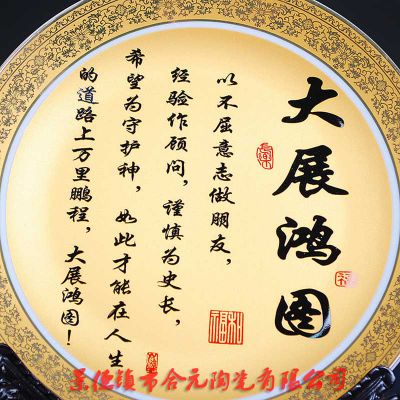 大展鸿图
以不屈意志做朋友，
经验作顾问，谨慎为史长，
希望为守护神，如此才能在人生
的道路上万里鹏程，大展鸿图！
和福
景德镇市合元陶瓷有限公司